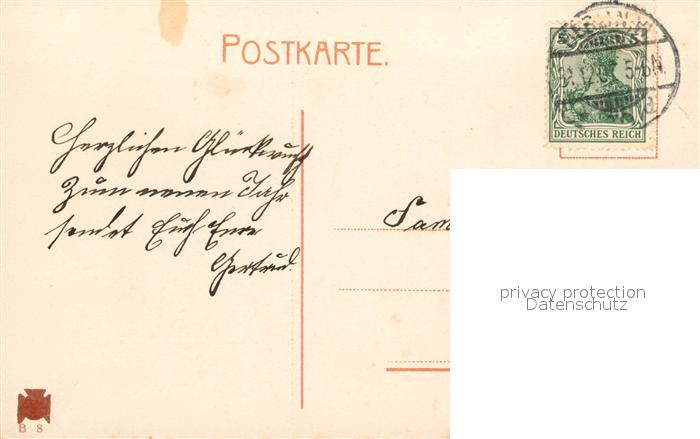 POSTKARTE.
5 5
31.12.0 5-6N.
DEUTSCHES REICH
Herzlichen Glückwunsch
Zum neuen Jahr
sendet Euch Eure
Gertrud.
Fam
privacy protection
Datenschutz
B 8